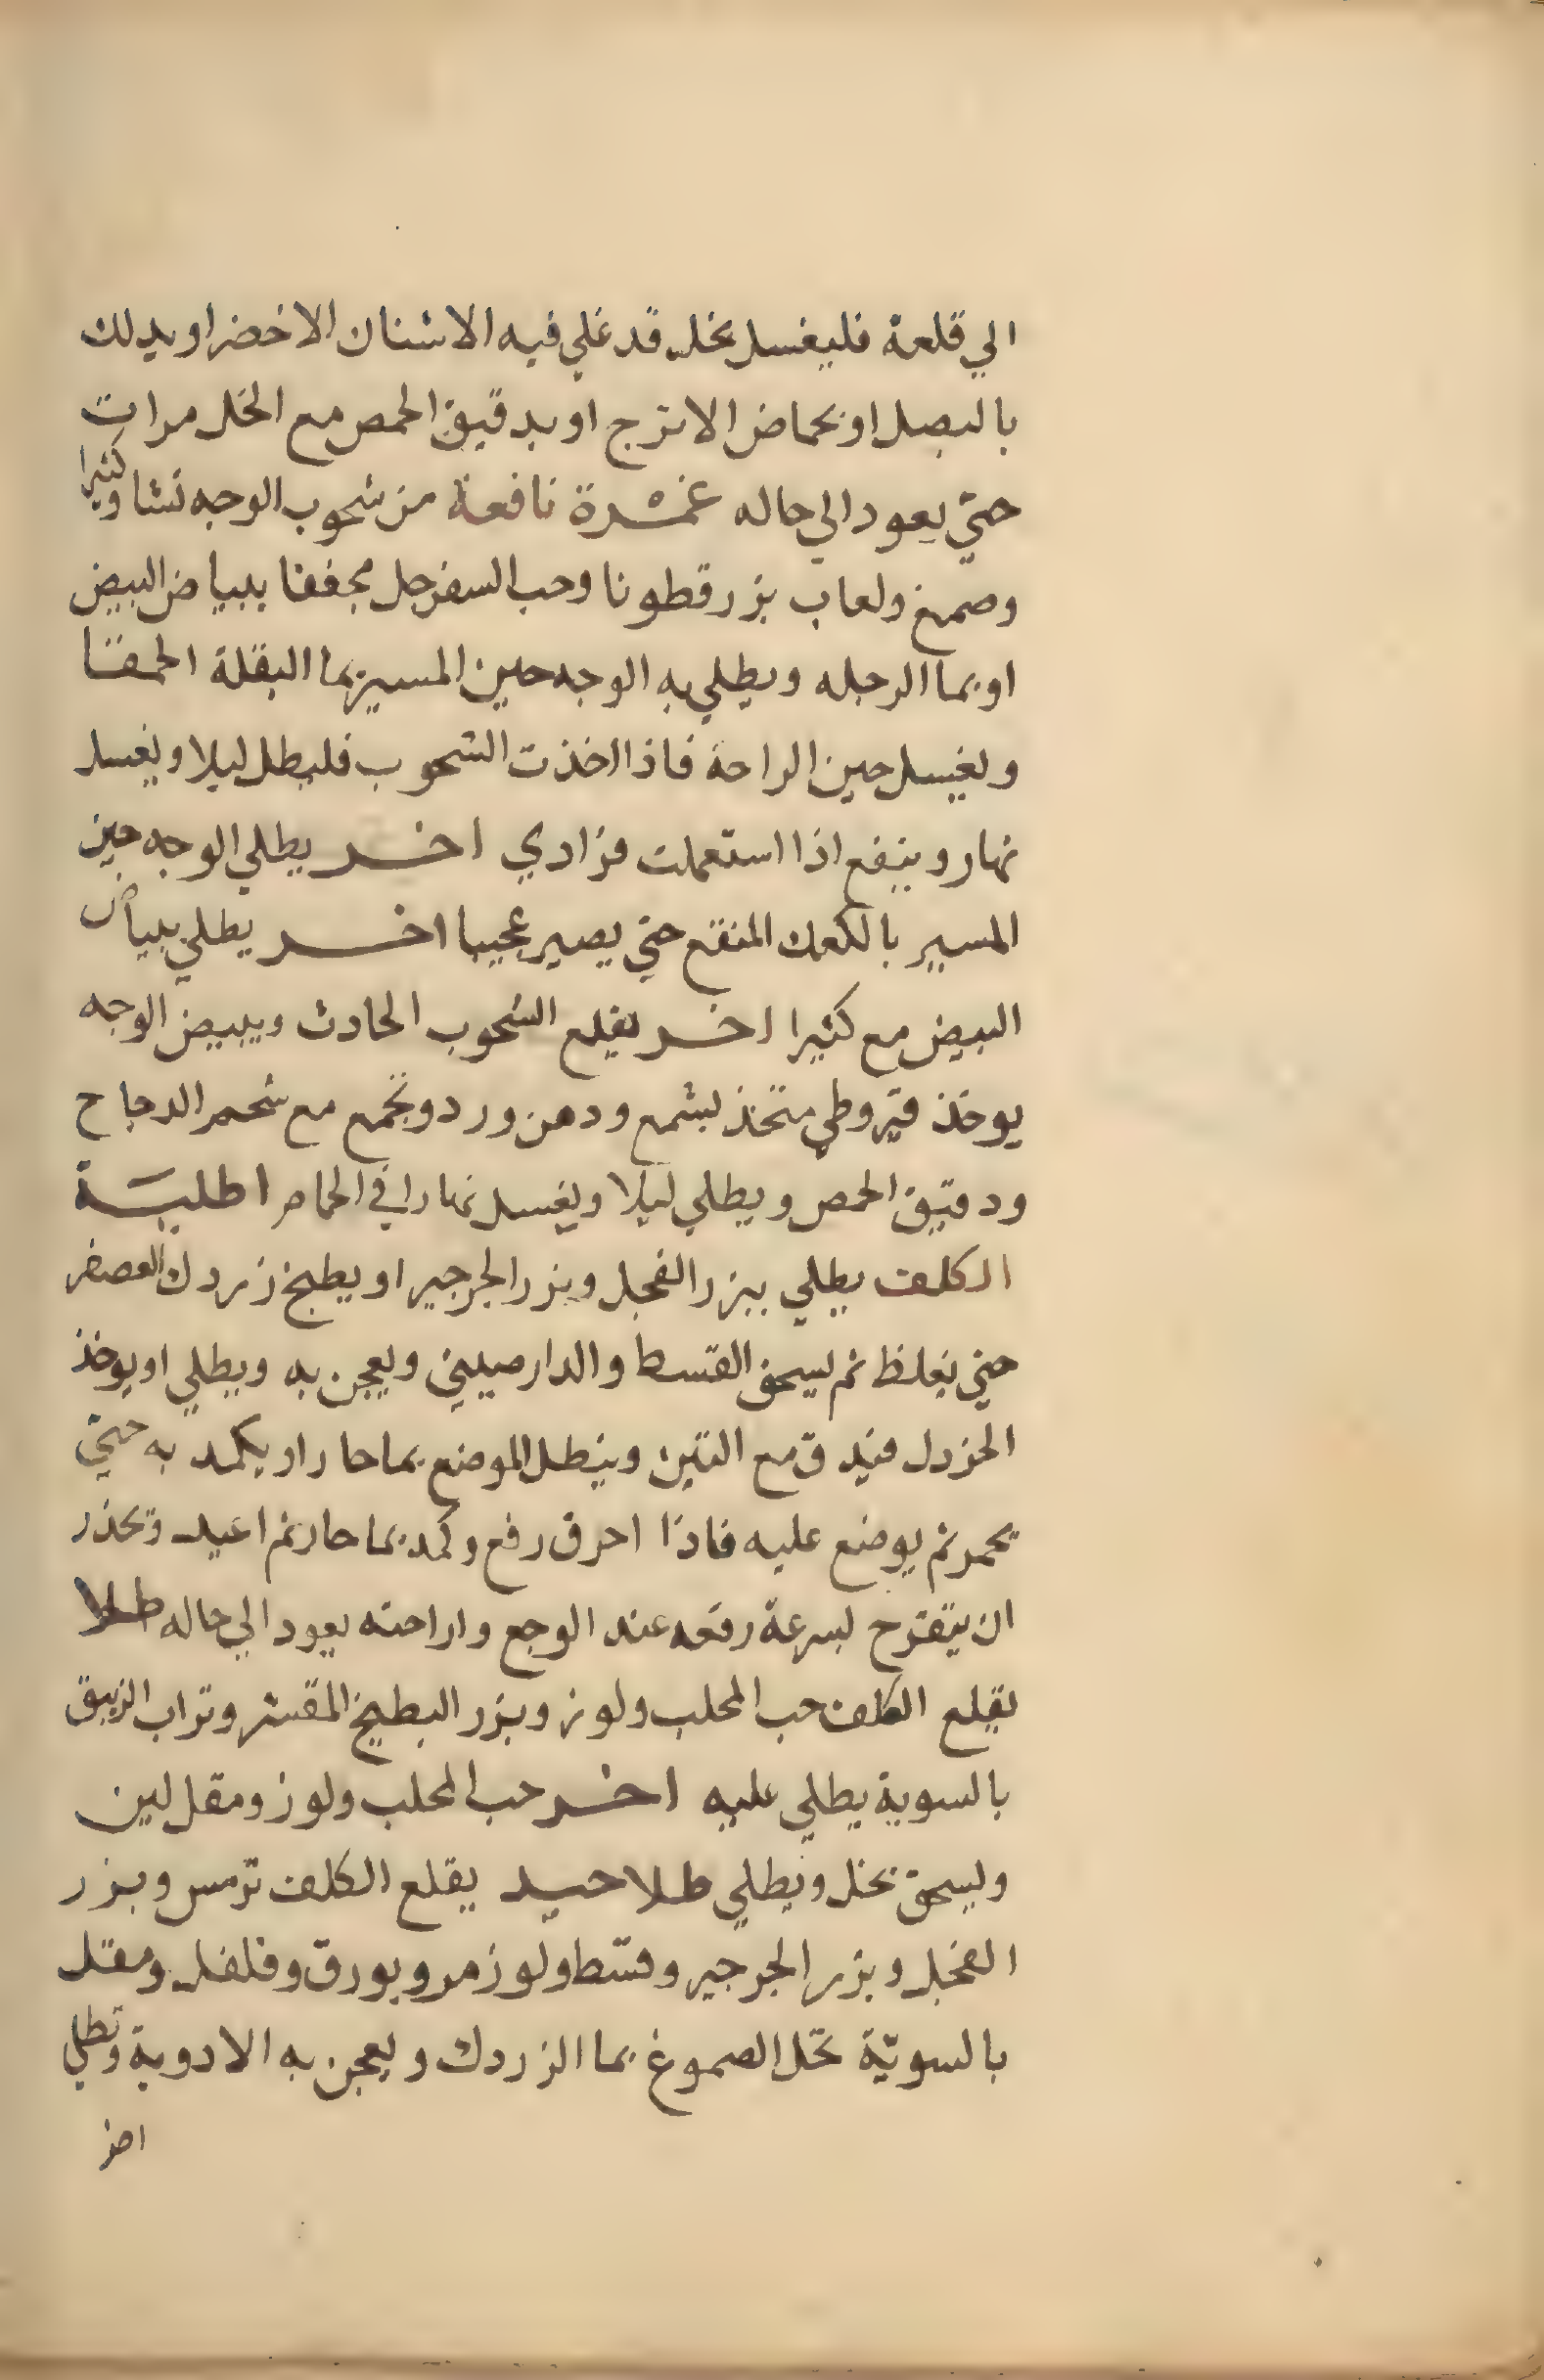 الي قلعة فليغسل بخل قد غلي فيه الاشنان الاخضر او يدلك
بالبصل او بحماض الاترج او بدقيق الحمص مع الخل مرات
حتي يعود الي حاله غمرة نافعة من شحوب الوجه نشا وكثيرا
وصمغ ولعاب بزر قطونا وحب السفرجل مجففا ببياض البيض
او بما الرجله ويطلي به الوجه حين المسير بما البقلة الحمقا
ويغسل حين الراحة فاذا اخذت الشحوب فليطل ليلا ويغسل
نهار وينفع اذا استعملت فرادي اخر يطلي الوجه حين
المسير بالكعك المنقع حتي يصير عجينا اخر يطلي ببياض
البيض مع كثيرا اخر يقلع الشحوب الحادث ويبيض الوجه
يوخذ قيروطي متخذ بشمع ودهن ورد وتجمع مع شحم الدجاج
ودقيق الحمص ويطلي ليلا ويغسل نهارا في الحمام اطلية
الكلف يطلي ببزر الفجل وبزر الجرجير او يطبخ زردك العصفر
حتي يغلظ ثم يسحق القسط والدارصيني ويعجن به ويطلي او يوخذ
الخردل فيدق مع التين وينطل الموضع بما حار او يكمد به حتي
يحمر ثم يوضع عليه فاذا احرق رفع وكمد بما حار ثم اعيد وتحذر
ان يتقرح بسرعة رفعه عند الوجع واراحته يعود الي حاله طلا
يقلع الكلف حب المحلب ولوز وبزر البطيخ المقشر وتراب الزيبق
بالسوية يطلي عليه اخر حب المحلب ولوز ومقل لين
ويسحق بخل ويطلي طلا جيد يقلع الكلف ترمس وبزر
الفجل وبزر الجرجير وقسط ولوز مر وبورق وفلفل ومقل
بالسوية تحل الصموغ بما الزردك ويعجن به الادوية وتطلي
اخر